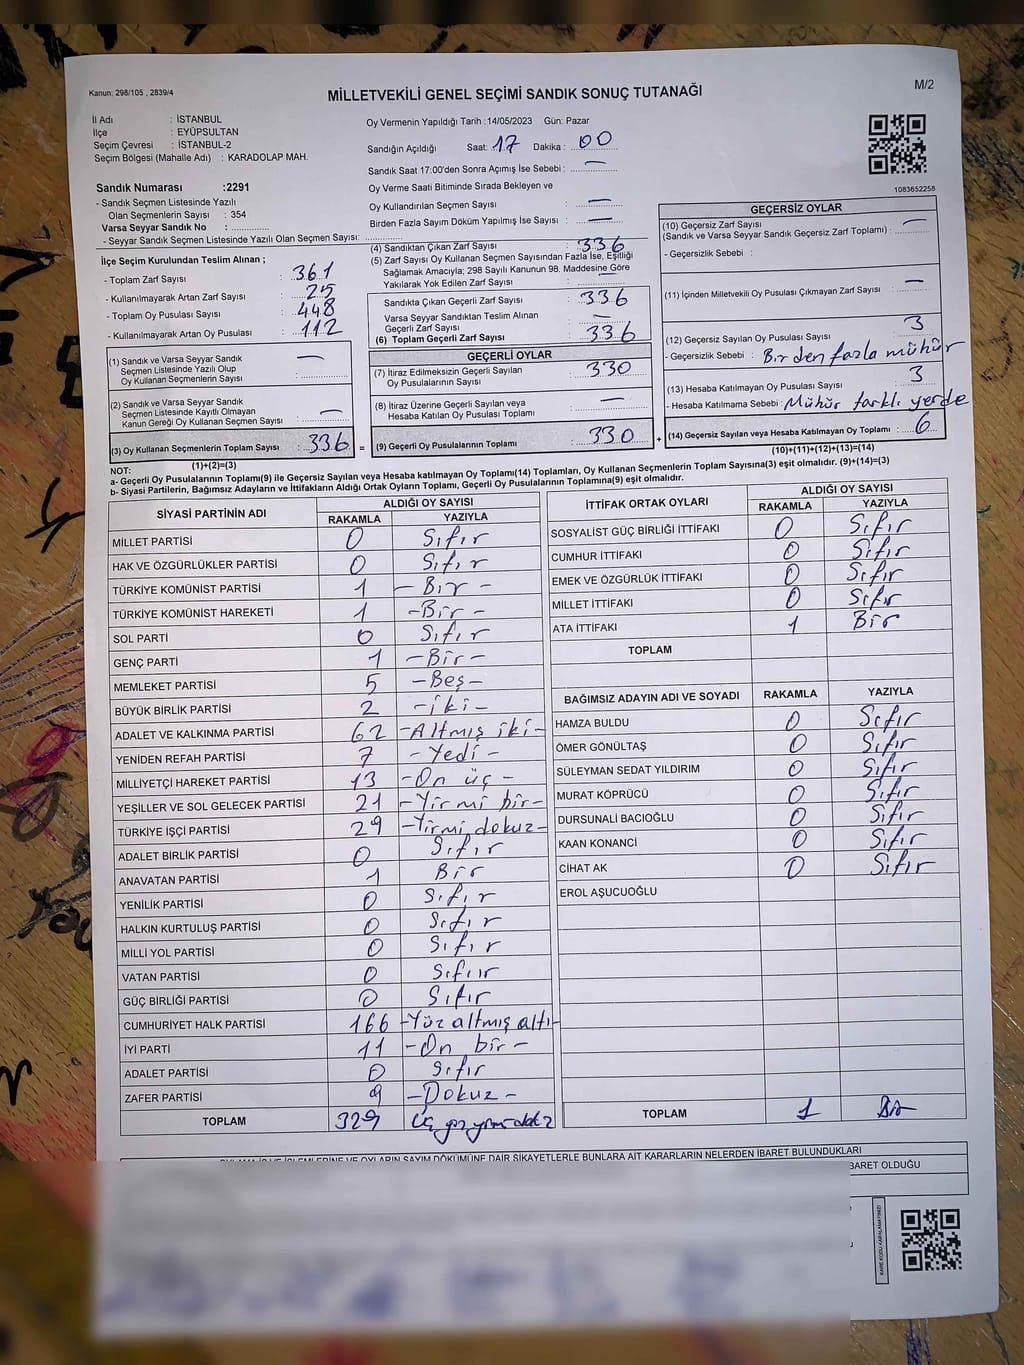 Kanun: 298/105 , 2839/4
MİLLETVEKİLİ GENEL SEÇİMİ SANDIK SONUÇ TUTANAĞI
M/2
İl Adı : İSTANBUL
İlçe : EYÜPSULTAN
Seçim Çevresi : İSTANBUL-2
Seçim Bölgesi (Mahalle Adı) : KARADOLAP MAH.
Sandık Numarası :2291
- Sandık Seçmen Listesinde Yazılı
Olan Seçmenlerin Sayısı : 354
Varsa Seyyar Sandık No :
- Seyyar Sandık Seçmen Listesinde Yazılı Olan Seçmen Sayısı:
Oy Vermenin Yapıldığı Tarih :14/05/2023 Gün: Pazar
Sandığın Açıldığı Saat: 17 Dakika : 00
Sandık Saat 17:00'den Sonra Açımış İse Sebebi : —
Oy Verme Saati Bitiminde Sırada Bekleyen ve
Oy Kullandırılan Seçmen Sayısı : —
Birden Fazla Sayım Döküm Yapılmış İse Sayısı : —
1083652258
İlçe Seçim Kurulundan Teslim Alınan ;
- Toplam Zarf Sayısı : 361
- Kullanılmayarak Artan Zarf Sayısı : 25
- Toplam Oy Pusulası Sayısı : 448
- Kullanılmayarak Artan Oy Pusulası : 112
(1) Sandık ve Varsa Seyyar Sandık
Seçmen Listesinde Yazılı Olup
Oy Kullanan Seçmenlerin Sayısı : —
(2) Sandık ve Varsa Seyyar Sandık
Seçmen Listesinde Kayıtlı Olmayan
Kanun Gereği Oy Kullanan Seçmen Sayısı : —
(3) Oy Kullanan Seçmenlerin Toplam Sayısı : 336 =
(1)+(2)=(3)
(4) Sandıktan Çıkan Zarf Sayısı : 336
(5) Zarf Sayısı Oy Kullanan Seçmen Sayısından Fazla İse, Eşitliği
Sağlamak Amacıyla; 298 Sayılı Kanunun 98. Maddesine Göre
Yakılarak Yok Edilen Zarf Sayısı : —
Sandıkta Çıkan Geçerli Zarf Sayısı : 336
Varsa Seyyar Sandıktan Teslim Alınan
Geçerli Zarf Sayısı : —
(6) Toplam Geçerli Zarf Sayısı : 336
GEÇERLİ OYLAR
(7) İtiraz Edilmeksizin Geçerli Sayılan
Oy Pusulalarının Sayısı : 330
(8) İtiraz Üzerine Geçerli Sayılan veya
Hesaba Katılan Oy Pusulası Toplamı : —
(9) Geçerli Oy Pusulalarının Toplamı : 330 +
GEÇERSİZ OYLAR
(10) Geçersiz Zarf Sayısı
(Sandık ve Varsa Seyyar Sandık Geçersiz Zarf Toplamı) : —
- Geçersizlik Sebebi :
(11) İçinden Milletvekili Oy Pusulası Çıkmayan Zarf Sayısı : —
(12) Geçersiz Sayılan Oy Pusulası Sayısı : 3
- Geçersizlik Sebebi : Birden fazla mühür
(13) Hesaba Katılmayan Oy Pusulası Sayısı : 3
- Hesaba Katılmama Sebebi : Mühür farklı yerde
(14) Geçersiz Sayılan veya Hesaba Katılmayan Oy Toplamı : 6
(10)+(11)+(12)+(13)=(14)
NOT:
a- Geçerli Oy Pusulalarının Toplamı(9) ile Geçersiz Sayılan veya Hesaba katılmayan Oy Toplamı(14) Toplamları, Oy Kullanan Seçmenlerin Toplam Sayısına(3) eşit olmalıdır. (9)+(14)=(3)
b- Siyasi Partilerin, Bağımsız Adayların ve İttifakların Aldığı Ortak Oyların Toplamı, Geçerli Oy Pusulalarının Toplamına(9) eşit olmalıdır.
SİYASİ PARTİNİN ADI ALDIĞI OY SAYISI
RAKAMLA YAZIYLA
MİLLET PARTİSİ 0 Sıfır
HAK VE ÖZGÜRLÜKLER PARTİSİ 0 Sıfır
TÜRKİYE KOMÜNİST PARTİSİ 1 - Bir -
TÜRKİYE KOMÜNİST HAREKETİ 1 - Bir -
SOL PARTİ 0 Sıfır
GENÇ PARTİ 1 - Bir -
MEMLEKET PARTİSİ 5 - Beş -
BÜYÜK BİRLİK PARTİSİ 2 - iki -
ADALET VE KALKINMA PARTİSİ 62 - Altmış iki -
YENİDEN REFAH PARTİSİ 7 - Yedi -
MİLLİYETÇİ HAREKET PARTİSİ 13 - On üç -
YEŞİLLER VE SOL GELECEK PARTİSİ 21 - Yirmi bir -
TÜRKİYE İŞÇİ PARTİSİ 29 - Yirmi dokuz -
ADALET BİRLİK PARTİSİ 0 Sıfır
ANAVATAN PARTİSİ 1 Bir
YENİLİK PARTİSİ 0 Sıfır
HALKIN KURTULUŞ PARTİSİ 0 Sıfır
MİLLİ YOL PARTİSİ 0 Sıfır
VATAN PARTİSİ 0 Sıfır
GÜÇ BİRLİĞİ PARTİSİ 0 Sıfır
CUMHURİYET HALK PARTİSİ 166 - Yüz altmış altı -
İYİ PARTİ 11 - On bir -
ADALET PARTİSİ 0 Sıfır
ZAFER PARTİSİ 9 - Dokuz -
TOPLAM 329
İTTİFAK ORTAK OYLARI ALDIĞI OY SAYISI
RAKAMLA YAZIYLA
SOSYALİST GÜÇ BİRLİĞİ İTTİFAKI 0 Sıfır
CUMHUR İTTİFAKI 0 Sıfır
EMEK VE ÖZGÜRLÜK İTTİFAKI 0 Sıfır
MİLLET İTTİFAKI 0 Sıfır
ATA İTTİFAKI 1 Bir
TOPLAM
BAĞIMSIZ ADAYIN ADI VE SOYADI RAKAMLA YAZIYLA
HAMZA BULDU 0 Sıfır
ÖMER GÖNÜLTAŞ 0 Sıfır
SÜLEYMAN SEDAT YILDIRIM 0 Sıfır
MURAT KÖPRÜCÜ 0 Sıfır
DURSUNALİ BACIOĞLU 0 Sıfır
KAAN KONANCİ 0 Sıfır
CİHAT AK 0 Sıfır
EROL AŞUCUOĞLU
TOPLAM 1 Bir
OYLAMA İŞ VE İŞLEMLERİNE VE OYLARIN SAYIM DÖKÜMÜNE DAİR ŞİKAYETLERLE BUNLARA AİT KARARLARIN NELERDEN İBARET BULUNDUKLARI
BARET OLDUĞU